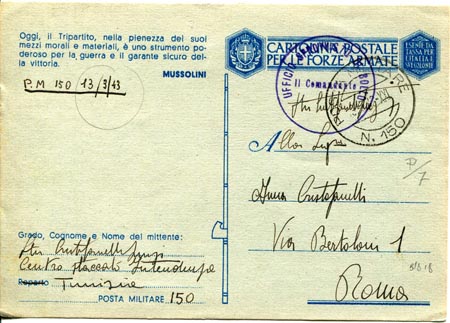 Oggi, il Tripartito, nella pienezza dei suoi
mezzi morali e materiali, è uno strumento po-
deroso per la guerra e il garante sicuro del-
la vittoria.
MUSSOLINI
P.M 150 13/3/43
CARTOLINA POSTALE
PER LE FORZE ARMATE
ESENTE DA
TASSA PER
L'ITALIA E
Il Comandante
N. 150
Alla
Anna Cristofanelli
Via Bertoloni 1
Roma
Grado, Cognome e Nome del mittente:
Cristofanelli
Centro
Reparto Tunisia
POSTA MILITARE 150